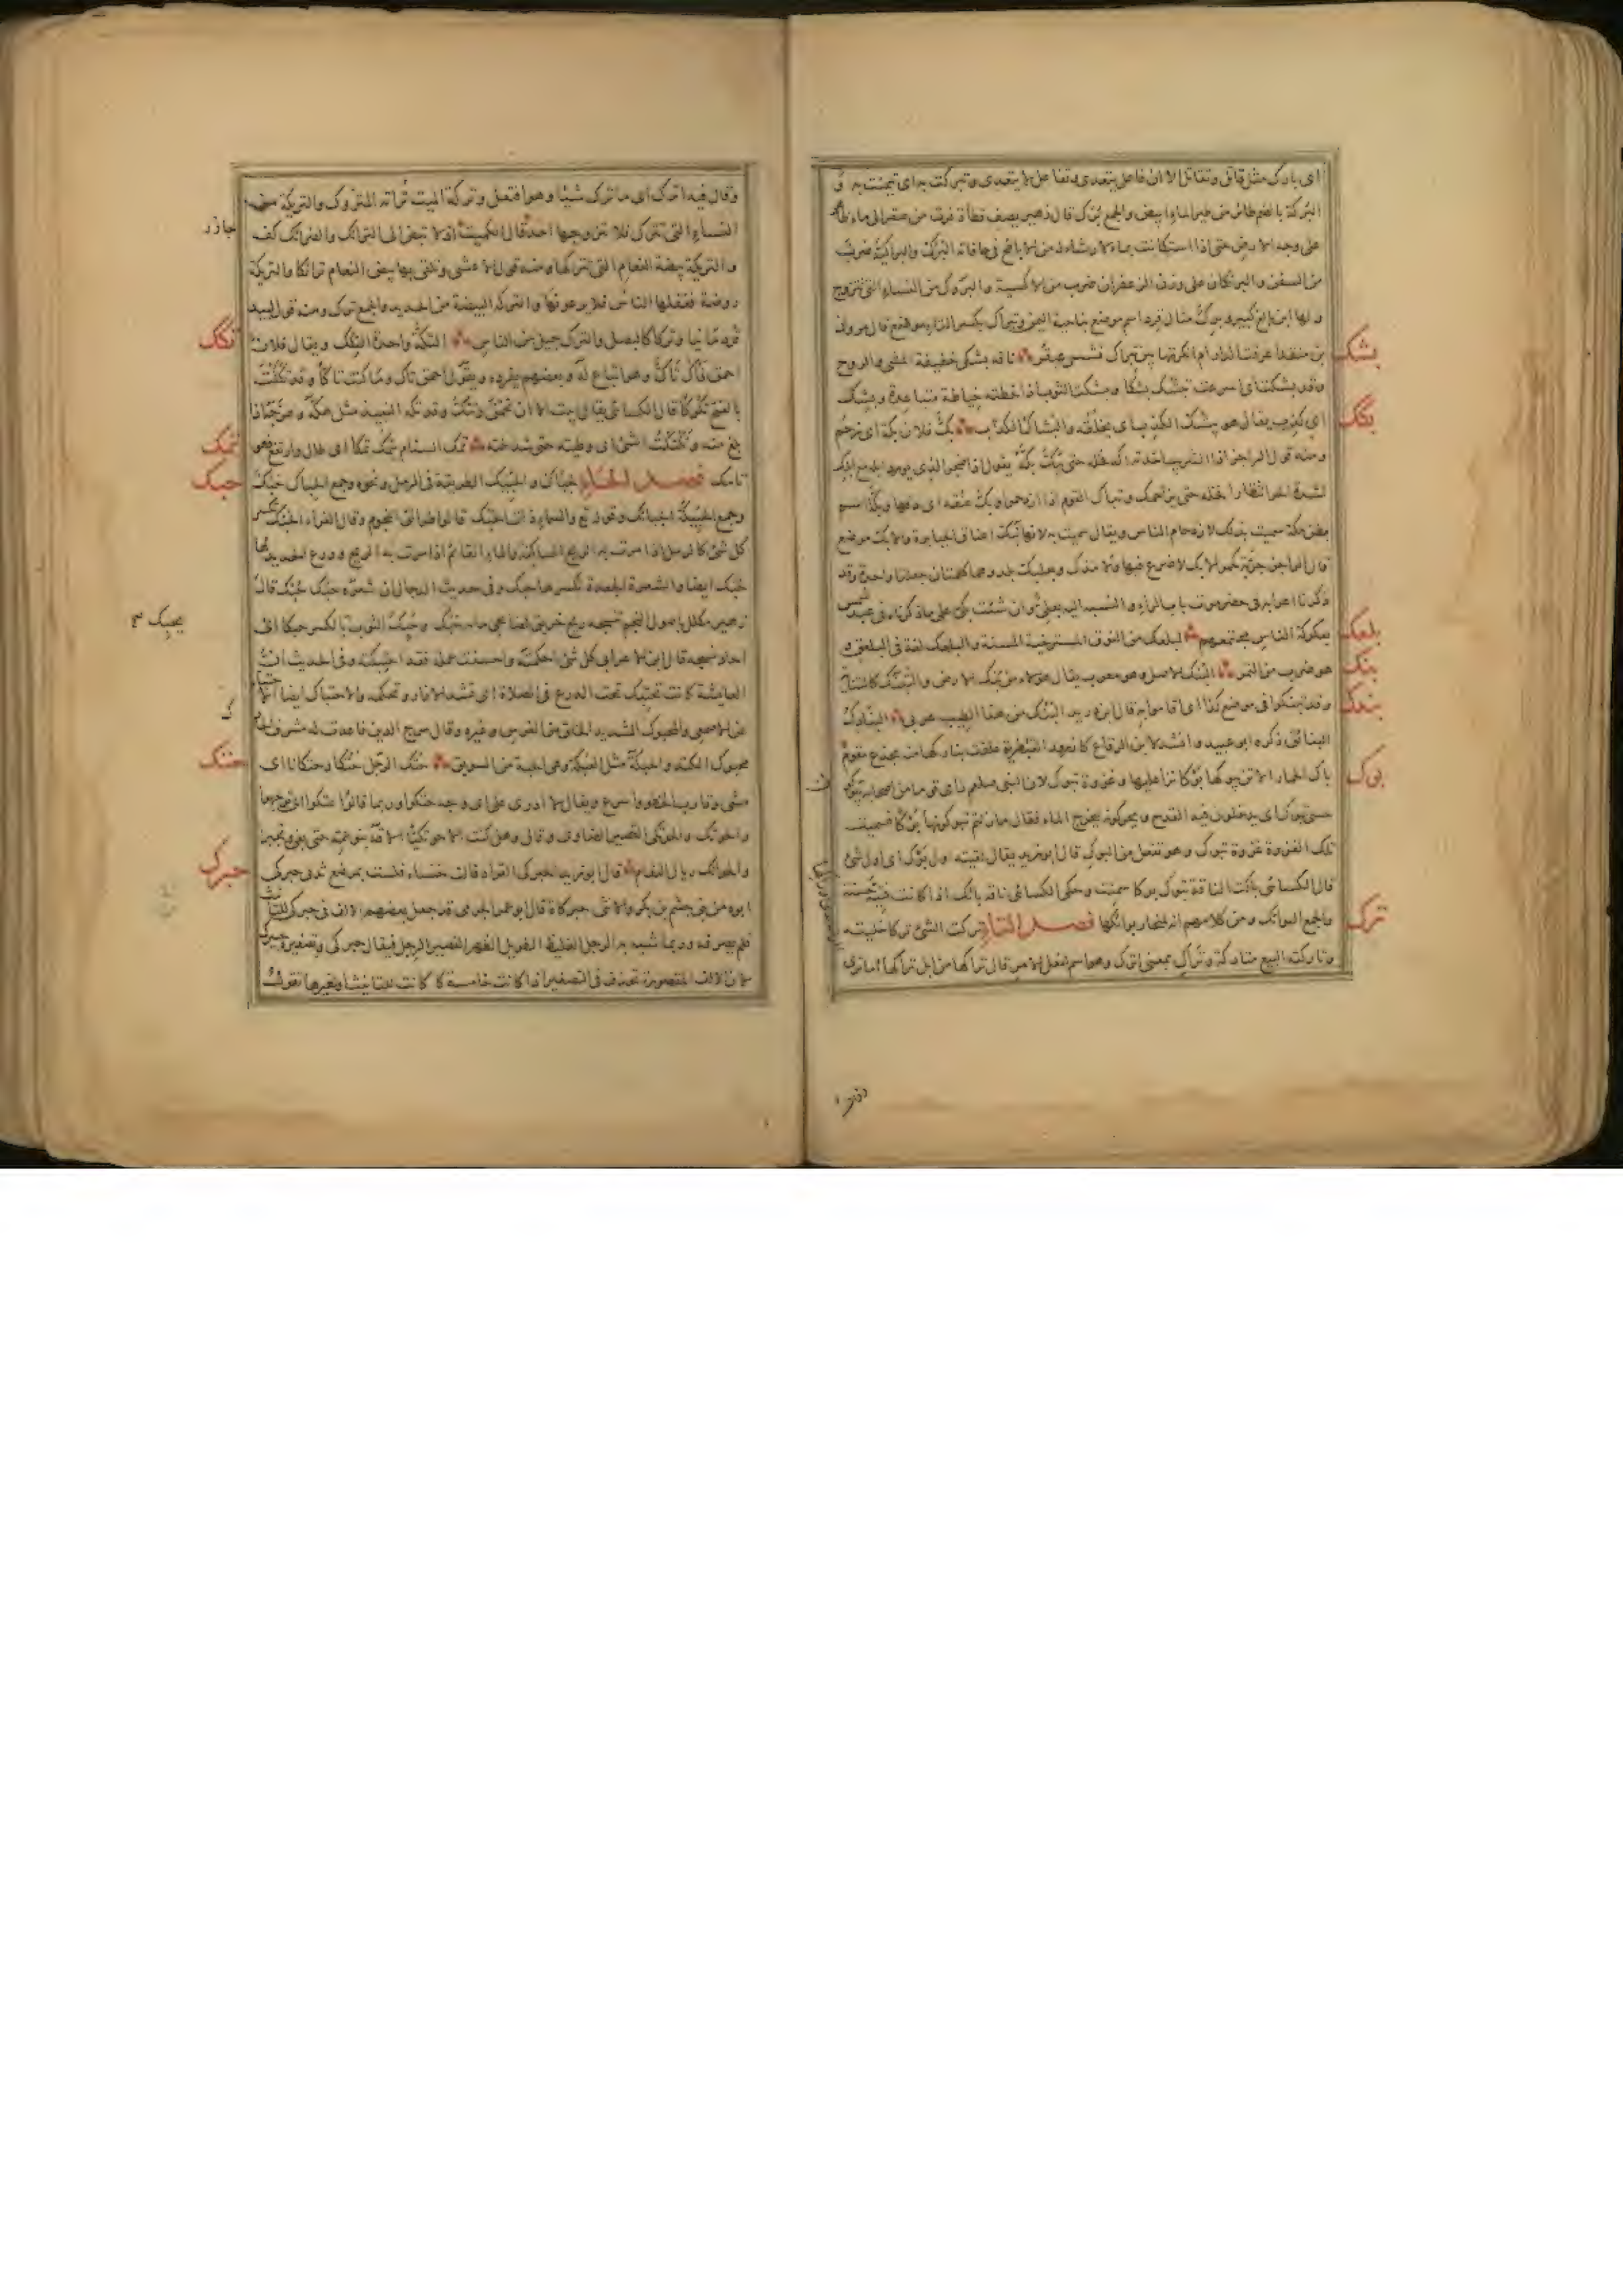 اى بارك مثل قاتل وتقاتل الا ان فاعل يتعدى وتفاعل لا يتعدى وتبركت به اى تيمنت به و
البركة بالضم طائر من طير الماء ابيض والجمع برك قال زهير يصف قطاة فرت من صقر الى ماء
على وجه الارض حتى اذا استكانت بماء لا رشاء له من الاباطح فى حافاته البرك والبراكية ضرب
من السفن والبرنكان على وزن الزعفران ضرب من الاكسية والبروك من النساء التى تتزوج
ولها ابن بالغ كبير وبرك مثال قرد اسم موضع بناحية اليمن وتبراك بكسر التاء موضع قال
بن منقذ اعرفت الدار ام انكرتها بين تبراك فشسى عبقر ناقة بشكى خفيفة المشى والروح
بشك
وقد بشكت اى اسرعت تبشك بشكا وبشكت الثوب اذا خطته خياطة متباعدة وبشك
اى كذب يقال هو يبشك الكذب اى يخلقه والبشاك الكذاب بك فلان بكه اى زحم
بكك
ومنه قول الراجز اذا الشريب اخذته اكه فخله حتى يبك بكه يقول اذا ضجر الذى يورد ابله مع ابلك
لشدة الحر انتظارا فخله حتى يزاحمك وتباك القوم اذا ازدحموا وبك عنقه اى دقها وبكة اسم
بطن مكة سميت بذلك لازدحام الناس ويقال سميت به لانها تبك اعناق الجبابرة والابك موضع
قال الراجز جربة كحمر الابك لا ضرع فيها ولا مذك وبعلبك بلد وهما كلمتان جعلتا واحدة وقد
ذكرنا اعرابه فى حضرموت باب الراء والنسبة اليه بعلى وان شئت بكى على ما ذكرناه فى عبد شمس
بعكوكة الناس مجتمعهم البلعك من النوق المسترخية المسنة والبلعك لغة فى البلعق و
بلعك
هو ضرب من التمر البنك الاصل وهو معرب يقال هؤلاء من بنك الارض والتبنك كالتناية
بنك
وقد تبنكوا فى موضع كذا اى اقاموا به قال ابن دريد البنك من هذا الطيب عربى البنادك
بندك
البنائق ذكره ابو عبيد وانشد لابن الرقاع كان زرور القبطرية علقت بنادكها منه بجذع مقوم
باك الحمار الاتان يبوكها بوكا نزا عليها وغزوة تبوك لان النبى صلعم راى قوما من اصحابه يبوكون
بوك
حسى تبوك اى يدخلون فيه القدح ويحركونه ليخرج الماء فقال ما زلتم تبوكونها بوكا فسميت
تلك الغزوة غزوة تبوك وهو تفعل من البوك قال ابو زيد يقال لقيته اول بوك اى اول شئ
قال الكسائى باكت الناقة تبوك بوكا سمنت وحكى الكسائى ناقة بائك اذا كانت فتية حسنة
والجمع البوائك ومن كلامهم انه لمنحار بوائكها فصل التاء تركت الشئ تركا خليته
ترك
وتاركته البيع متاركة وتراك بمعنى اترك وهو اسم لفعل الامر قال تراكها من ابل تراكها اما ترى
وقال فيه اترك اى ما ترك شيئا وهو افتعل وتركة الميت تراثه المتروك والتريكة من
النساء التى تترك فلا يتزوجها احد قال الكميت اذ لا تبض الى الترائك والضرائك كف
جازر
والتريكة بيضة النعام التى تتركها ومنه قول الاعشى وتلقى بها بيض النعام ترائكا والتريكة
روضة يغفلها الناس فلا يرعونها والتركة البيضة من الحديد والجمع ترك ومنه قول لبيد
قردمانيا وتركا كالبصل والترك جيل من الناس التكة واحدة التكك ويقال فلان
تكك
احمق فاك تاك وهو اتباع له وبعضهم يفرده ويقول احمق تاك وما كنت تاكا وقد تككت
بالفتح تكوكا قال الكسائى يقال ابيت الا ان تحمق وتتك وقد تكه النبيذ مثل هكه وهرجه اذا
بلغ منه وتكتكت الشئ اى وطئته حتى شدخته تمك السنام يتمك تمكا اى طال وارتفع فهو
تمك
تامك فصل الحاء الحباك والحبيكة الطريقة فى الرمل ونحوه وجمع الحباك حبك
حبك
وجمع الحبيكة الحبائك وقوله تع والسماء ذات الحبك قالوا طرائق النجوم وقال الفراء الحبك تكسر
كل شئ كالرمل اذا مرت به الريح الساكنة والماء القائم اذا مرت به الريح ودرع الحديد لها
حبك ايضا والشعرة الجعدة تكسرها حبك وفى حديث الدجال ان شعره حبك حبك قال
زهير مكلل باصول النجم تنسجه ريح خريق لضاحى مائه حبك وحبك الثوب بالكسر حبكا اى
يحبك
اجاد نسجه قال ابن الاعرابى كل شئ احكمته واحسنت عمله فقد احتبكته وفى الحديث ان
العايشة كانت تحتبك تحت الدرع فى الصلاة اى تشد الازار وتحكمه والاحتباك ايضا الاحتباء
عن الاصمعى والمحبوك الشديد الخلق من الفرس وغيره وقال مرج الدين فاعددت له مشرف
محبوك الكتد والحبكة مثل العبكة وهى الحبة من السويق حتك الرجل حتكا وحتكانا اى
حتك
مشى وقارب الخطو واسرع ويقال لا ادرى على اى وجه حتكوا وربما قالوا عتكوا اى توجهوا
والحوتك والحوتكى القصير الضاوى وقال وهل كنت الا حوتكيا
والحواتك رئال النعام قال ابو زيد الحبركى القراد قالت خنساء فلست بمرضع ثديى حبركى
حبرك
ابوه من بنى جشم بن بكر والانثى حبركاة قال ابو عمرو الجرمى قد جعل بعضهم الالف فى حبركى للتانيث
فلم يصرفه وربما شبه به الرجل الغليظ الطويل الظهر القصير الرجل فيقال حبركى وتصغيره حبيرك
لان الالف المقصورة تحذف فى التصغير اذا كانت خامسة كانت للتانيث او لغيرها تقول